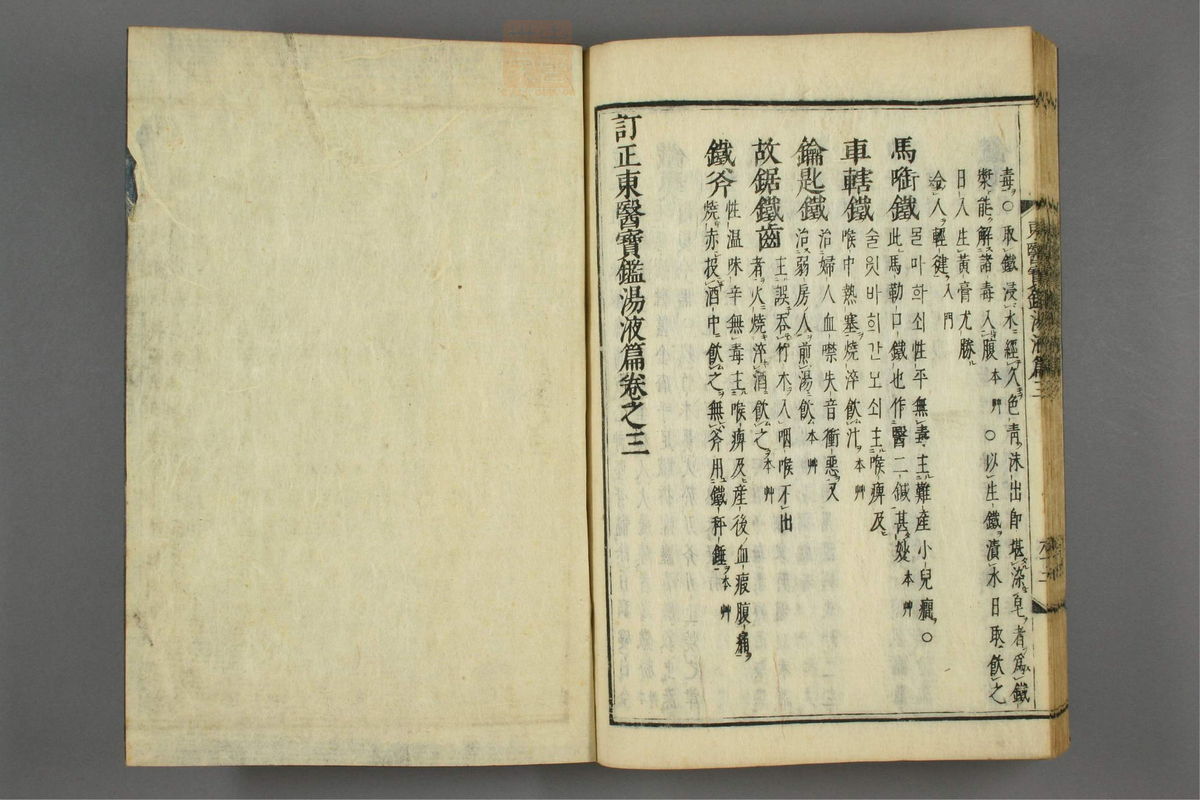 毒○取鐵浸水經久色靑沫出卽堪染皂者爲鐵
漿能解諸毒入腹本艸○以生鐵漬水日取飮之
日久生黃膏尤勝
令人輕健入門
馬啣鐵 믈마화쇠性平無毒主難產小兒癎○
此馬勒口鐵也作醫工鍼甚妙本艸
車轄鐵 술윗바회간모쇠主喉痺及
喉中熱塞燒淬飮汁本艸
鑰匙鐵 治婦人血噤失音衝惡又
治弱房人煎湯飮本艸
故鋸鐵齒 主誤吞竹木入咽喉不出
者火燒淬酒飮之本艸
鐵斧 性温味辛無毒主喉痺及產後血瘕腹痛
燒赤投酒中飮之無斧用鐵秤錘本艸
訂正東醫寶鑑湯液篇卷之三
東醫寶鑑湯液篇三